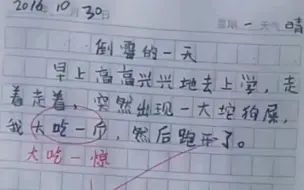 2016年10月30日 星期一 天气晴
倒霉的一天
早上高高兴兴地去上学，走
着走着，突然出现一大坨狗屎，
我大吃一斤，然后跑开了。
大吃一惊